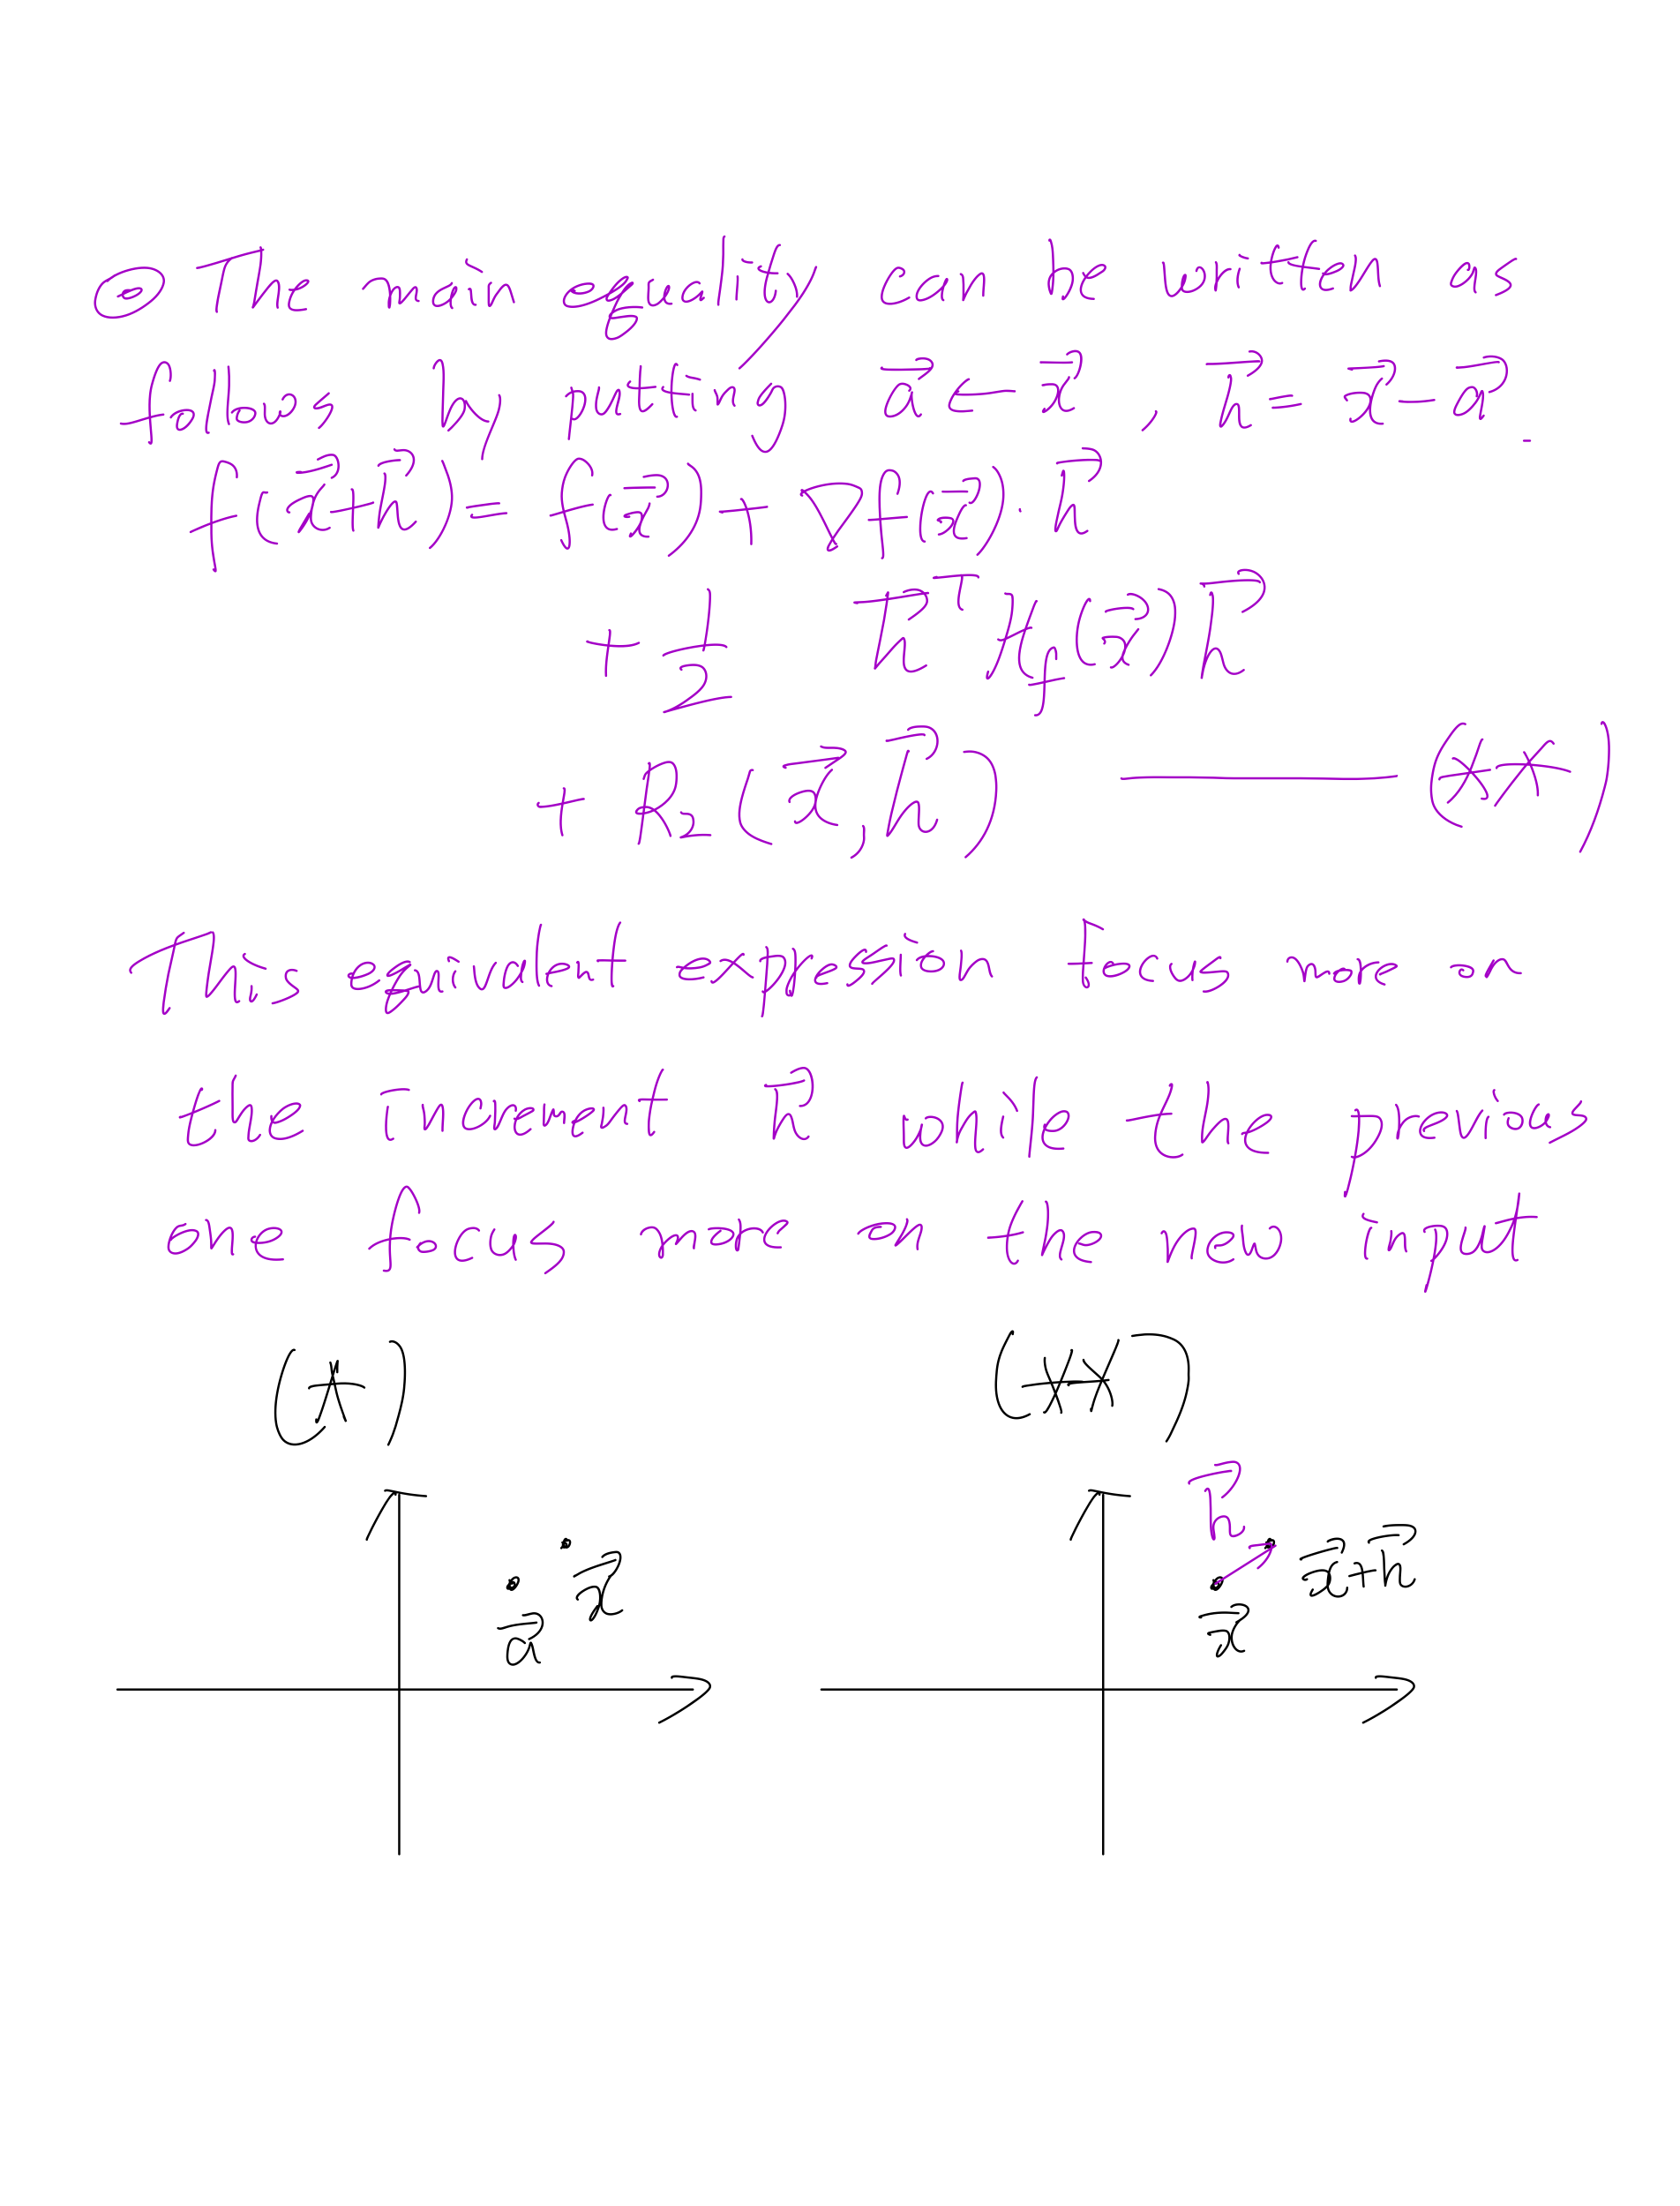 ⊙ The main equality can be written as
follows by putting a⃗ ← x⃗ , h⃗ = x⃗ - a⃗.
f(x⃗+h⃗) = f(x⃗) + ∇f(x⃗)·h⃗
+ 1/2 h⃗ᵀ H_f(x⃗) h⃗
+ R₂(x⃗, h⃗) ——— (**)
This equivalent expression focus more on
the increment h⃗ while the previous
one focus more on the new input
(*) (**)
x⃗
a⃗
h⃗
x⃗+h⃗
x⃗